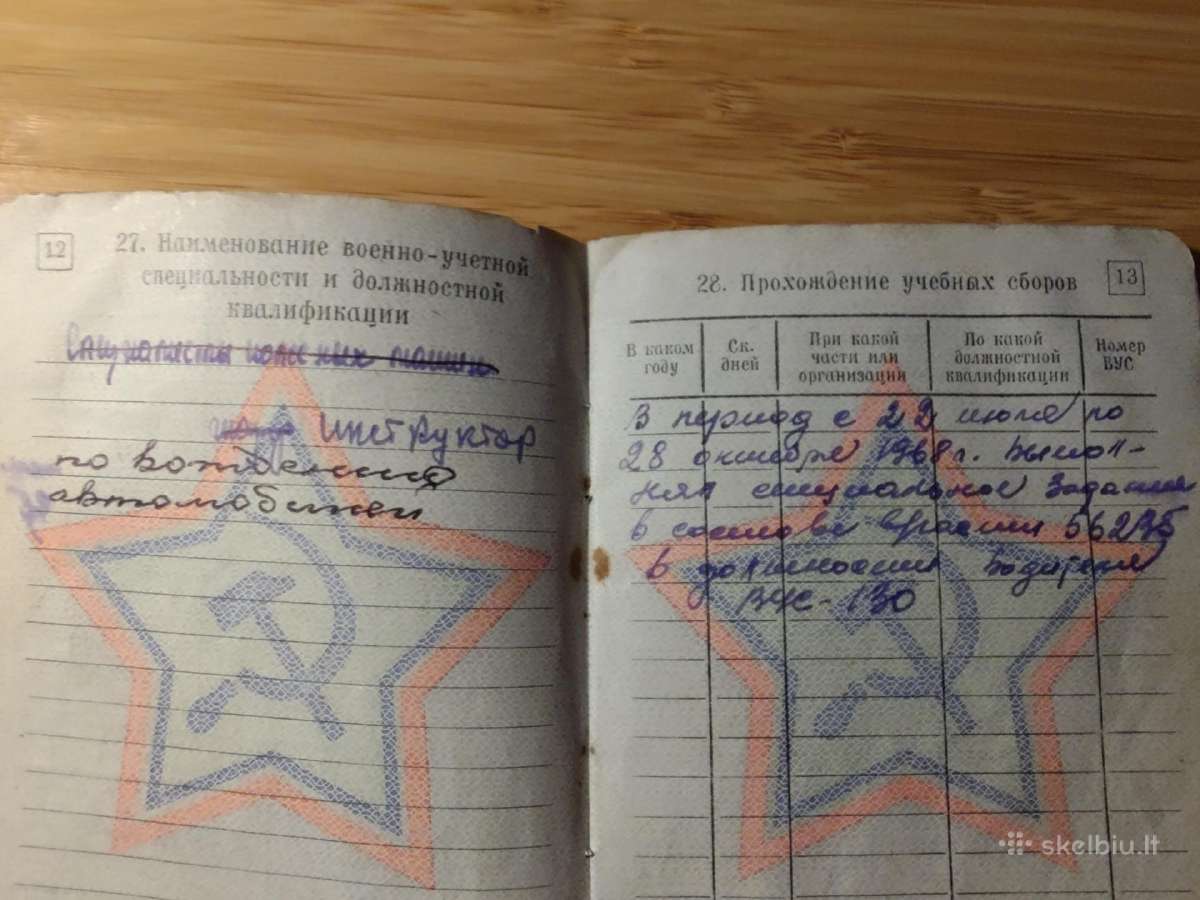 12
27. Наименование военно-учетной
специальности и должностной
квалификации
Специалисты
Инструктор
по вождению
автомобилей
28. Прохождение учебных сборов
13
В каком году
Ск. дней
При какой части или организации
По какой должностной квалификации
Номер ВУС
В период с 22 июля по
28 октября 1968 г. выпол-
нял специальное задание
в составе в/части 56275
в должности водителя
ВУС-130
skelbiu.lt